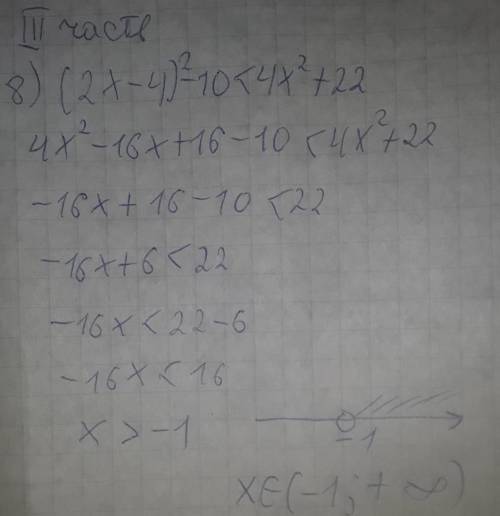 III часть
8) (2x-4)²-10<4x²+22
4x²-16x+16-10<4x²+22
-16x+16-10<22
-16x+6<22
-16x<22-6
-16x<16
x>-1
-1
x∈(-1;+∞)